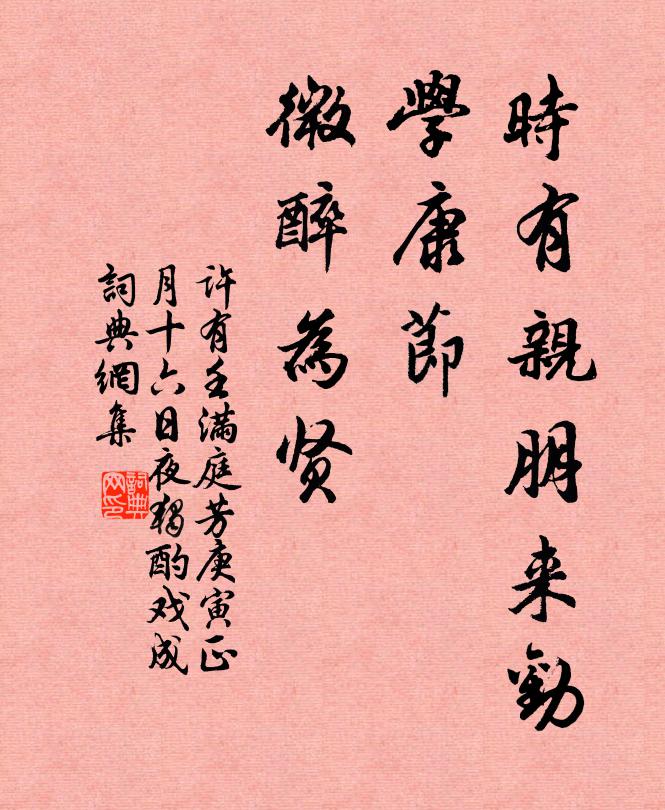 時有親朋来勸
學康節
微醉為贤
许有壬滿庭芳庚寅正
月十六日夜獨酌戏成
詞典網集
詞典
网印